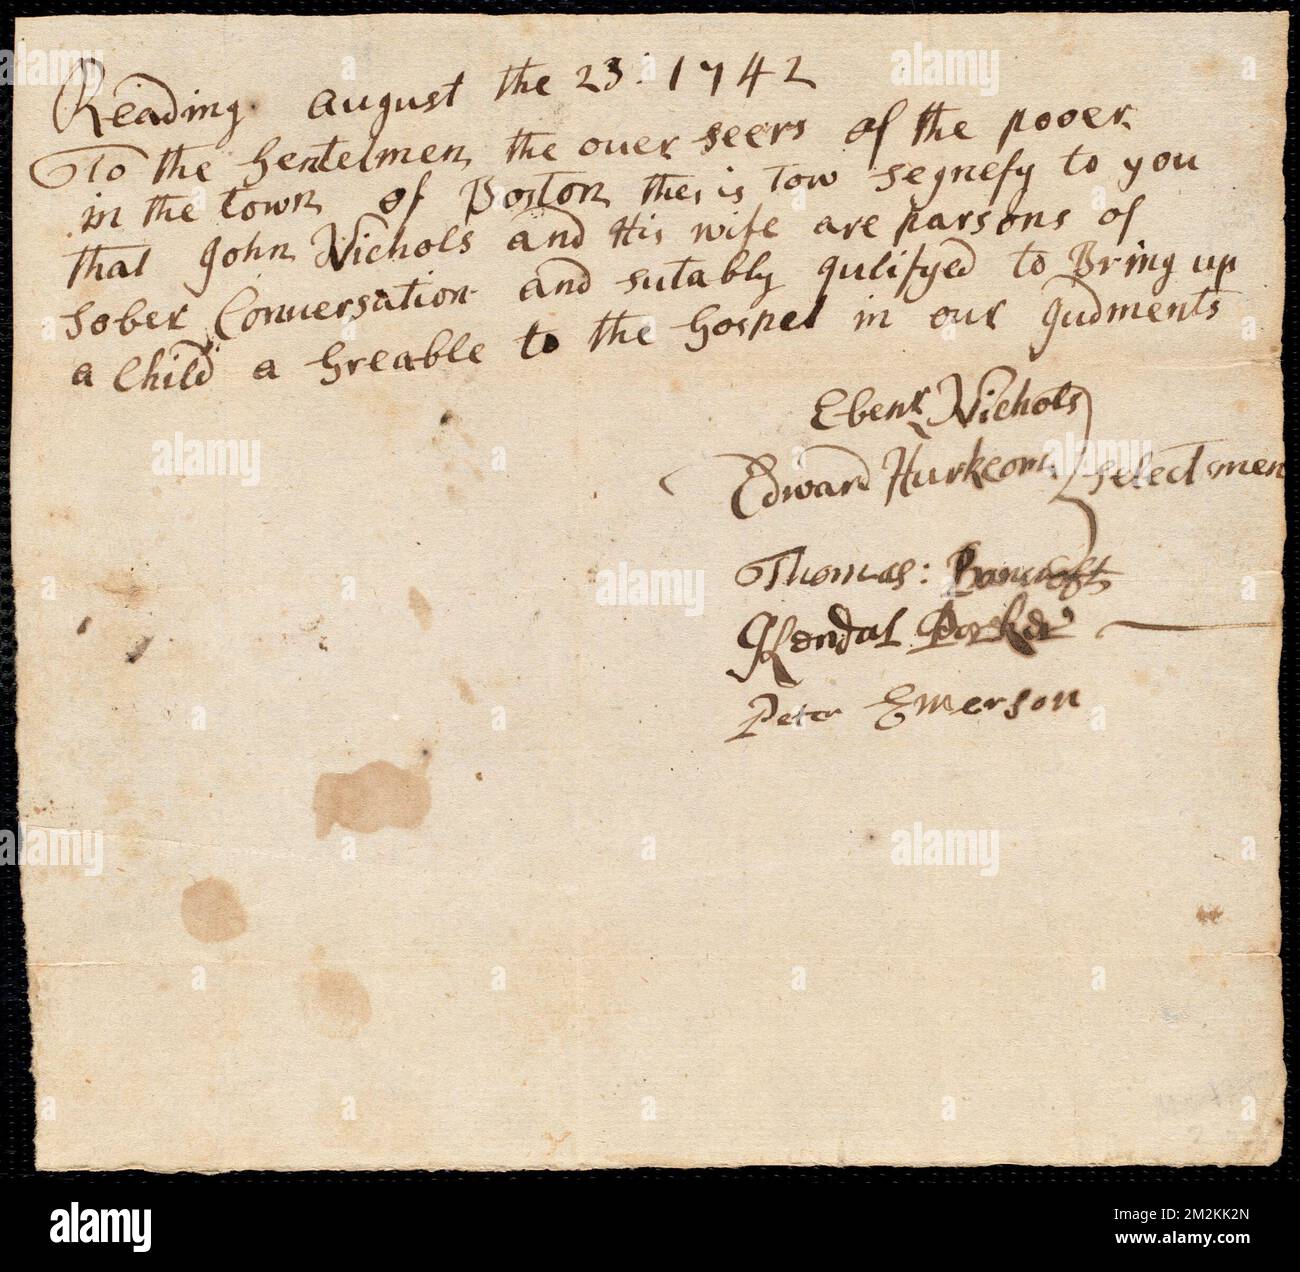 Reading august the 23: 1742
To the Gentelmen the ouer seers of the pooer
in the town of Boston thes is Tow segnefy to you
that John Nichols and His wife are parsons of
sober Conuersation and sutably qulifyed to Bring up
a Child a Greable to the Gospel in our Judments
Ebenr Nichols
Edward Hurkcom selectsmen
Thomas: Bancroft
Kendal Parker
Peter Emerson
alamy
Image ID: 2M2KK2N
www.alamy.com